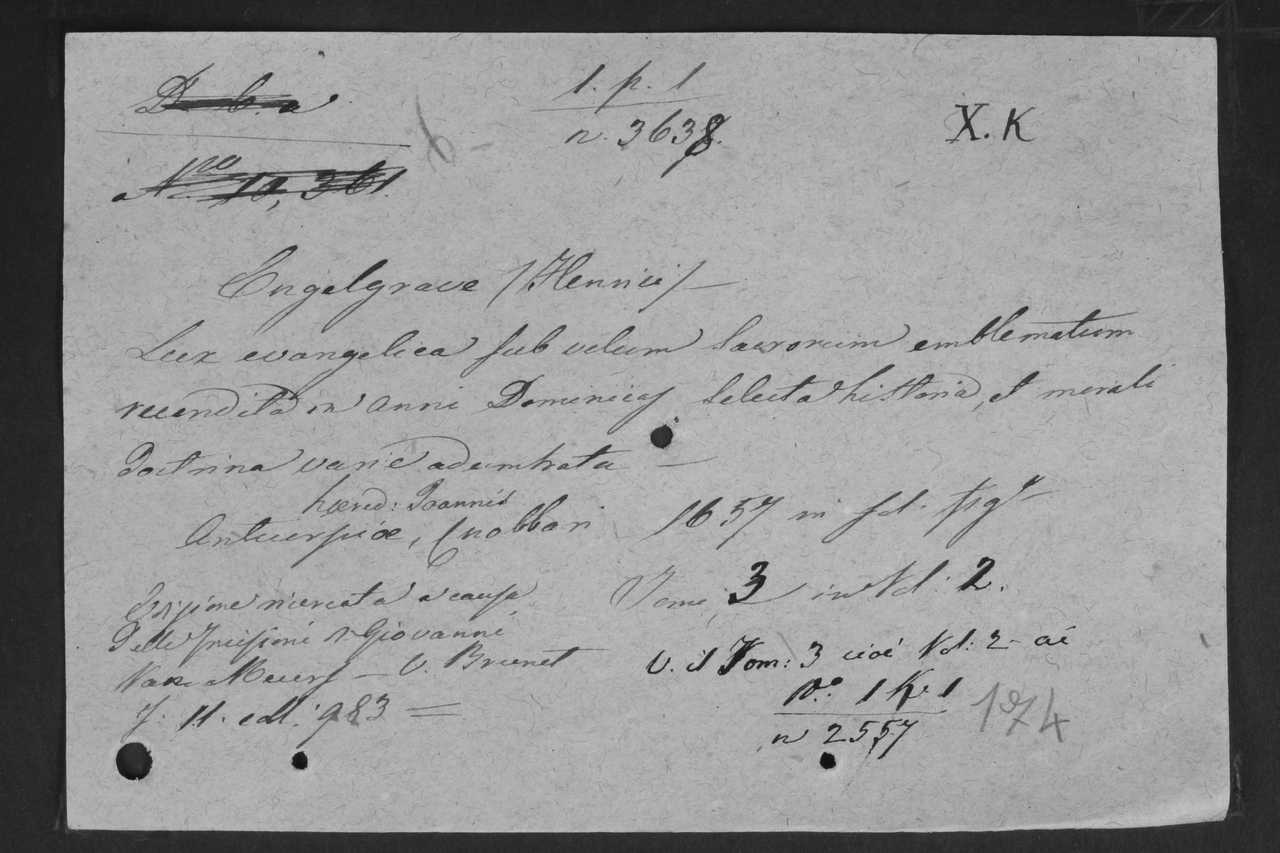 D. b. a
1. p. 1
n. 3638.
X. K
Nro 10,361.
Engelgrave /Hennici/ —
Lux evangelica sub velum Sacrorum emblematum
recondita in anni Dominicas selecta historia, et morali
doctrina varie adumbrata —
hæred: Joannis
Antuerpiæ, Cnobbari 1657 in fol. figr
Tomi 3 in Vol: 2.
Edizione ricercata a causa
delle Incisioni di Giovanni
Van Meurs — V. Brunet
T. 11. col: 983 =
V. il Tom: 3 cioè Vol: 2 – ai
No. 1 K. 1
n 2557
174